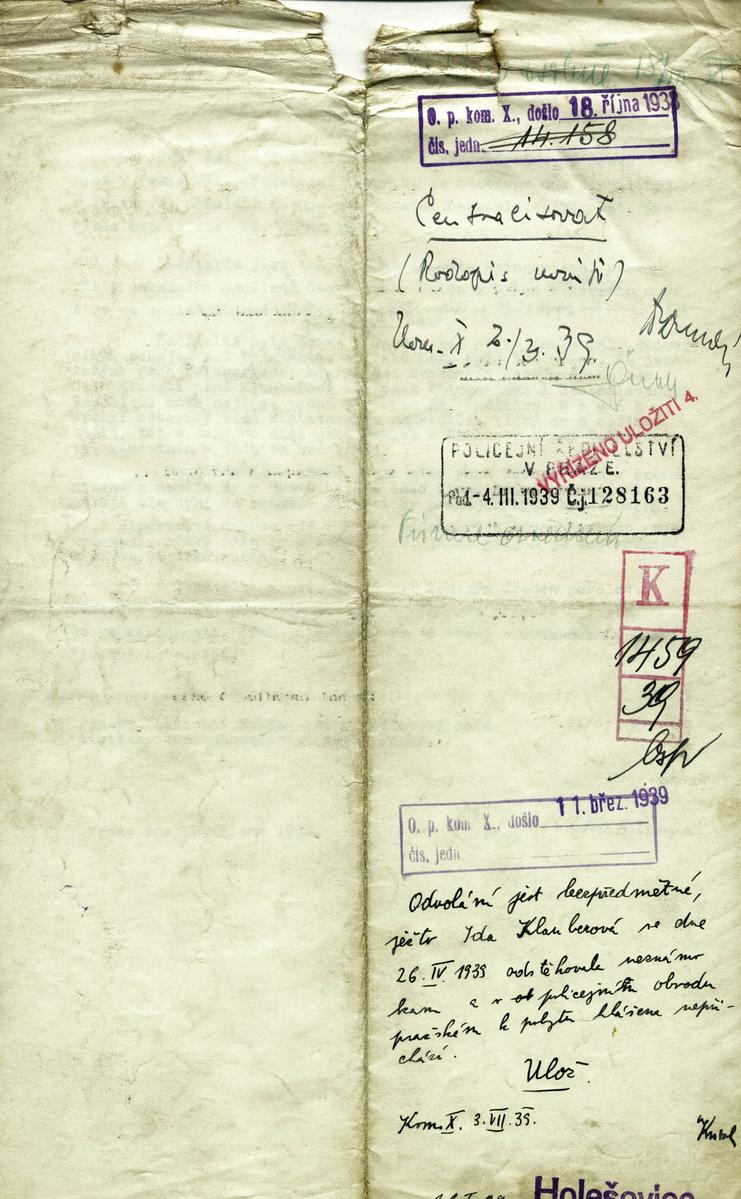 osobně
O. p. kom. X., došlo 18. října 193
čís. jedn. 14.158
Centralisovat
(Rodopis uvnitř)
X 2./3. 39.
VYŘÍZENO ULOŽITI 4.
POLICEJNÍ ŘEDITELSTVÍ
V PRAZE.
Pod. -4. III. 1939 Čj. 128163
K
1459
39
O. p. kom X., došlo 11. břez. 1939
čís. jedn.
Odvolání jest bezpředmětné,
ježto Ida Klauberová se dne
26. IV. 1939 odstěhovala neznámo
kam a v policejním obvodu
pražském k pobytu hlášena nepři-
chází.
Ulož.
Kom. X. 3. VII. 39.
Holešovice